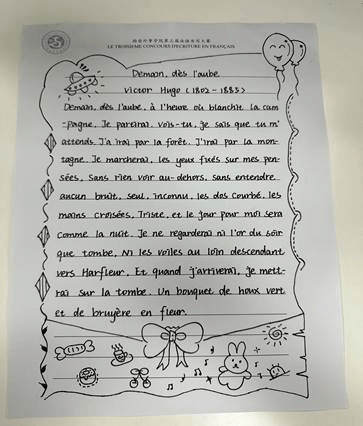 LE TROISIÈME CONCOURS D'ÉCRITURE EN FRANÇAIS
Demain, dès l'aube
Victor Hugo (1802-1885)
Demain, dès l'aube, à l'heure où blanchit la cam
-pagne, Je partirai. Vois-tu, je sais que tu m'
attends. J'a irai par la forêt. J'irai par la mon-
tagne. Je marcherai, les yeux fixés sur mes pen-
sées, Sans rien voir au-dehors, sans entendre
aucun bruit, Seul, inconnu, les dos courbé, les
mains croisées, Triste, et le jour pour moi sera
comme la nuit. Je ne regarderai ni l'or du soir
que tombe, Ni les voiles au loin descendant
vers Harfleur, Et quand j'arriverai, je mett-
rai sur la tombe. Un bouquet de houx vert
et de bruyère en fleur.